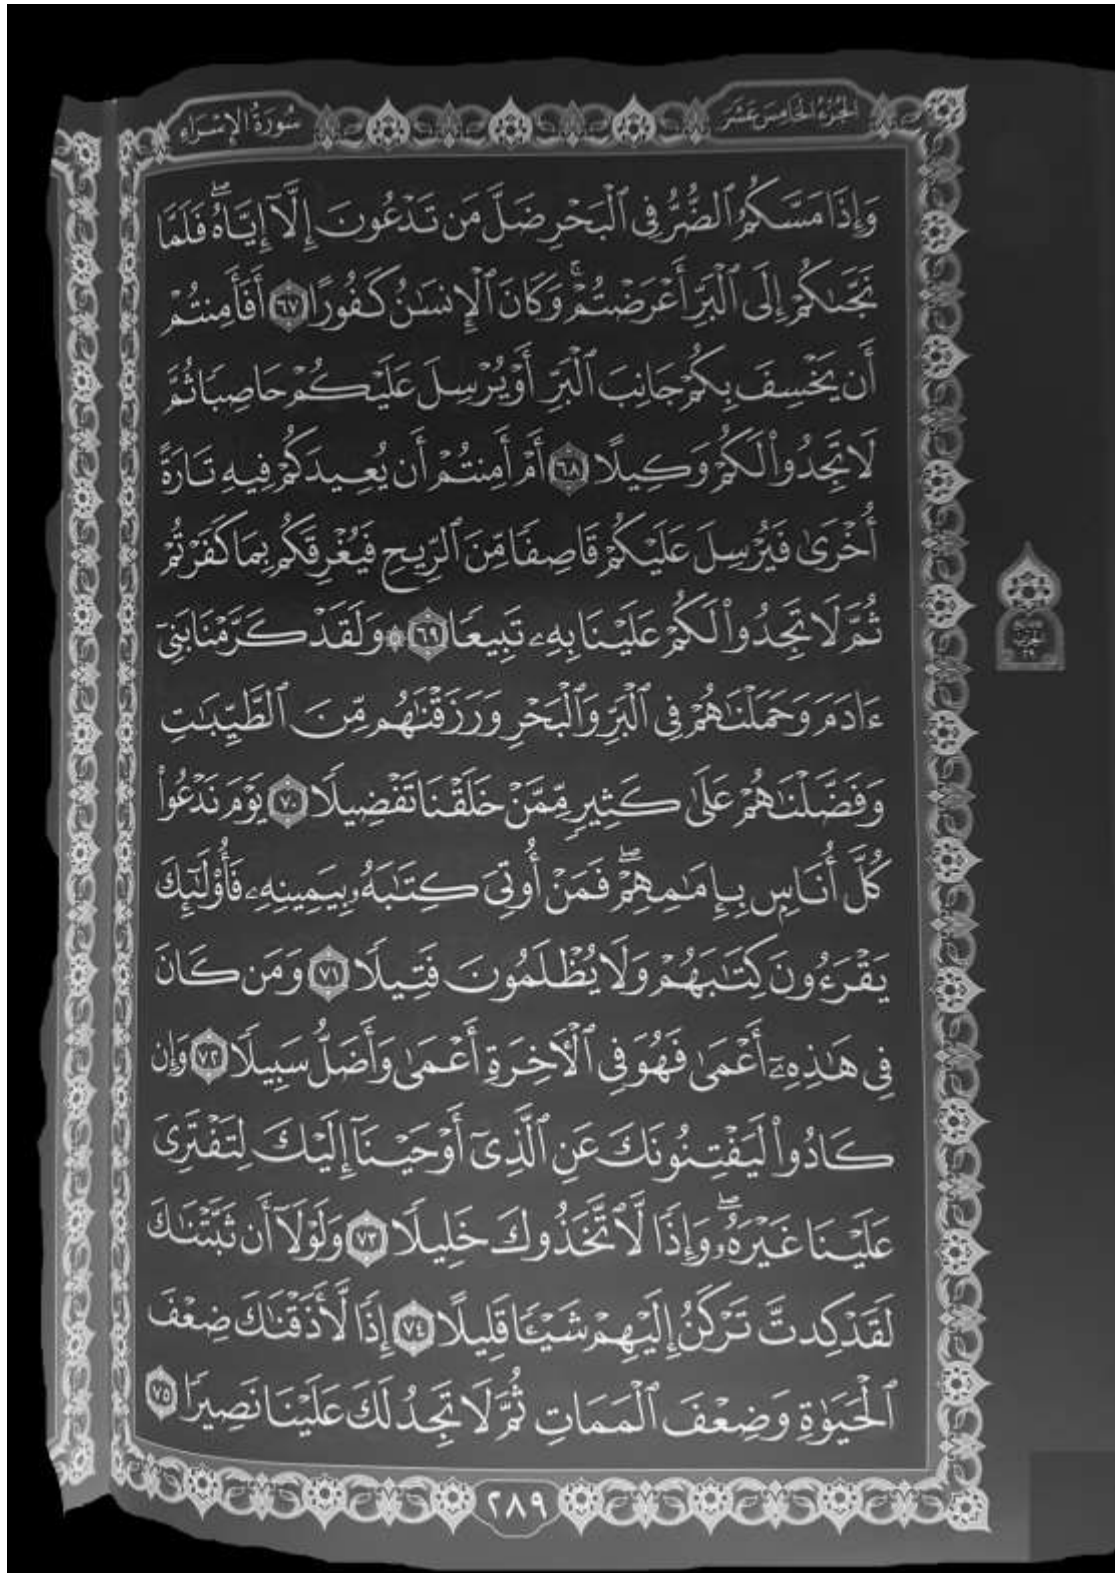 الجزء الخامس عشر
سورة الإسراء
وَإِذَا مَسَّكُمُ ٱلضُّرُّ فِى ٱلْبَحْرِ ضَلَّ مَن تَدْعُونَ إِلَّآ إِيَّاهُۖ فَلَمَّا
نَجَّىٰكُمْ إِلَى ٱلْبَرِّ أَعْرَضْتُمْۚ وَكَانَ ٱلْإِنسَٰنُ كَفُورًا ٦٧ أَفَأَمِنتُمْ
أَن يَخْسِفَ بِكُمْ جَانِبَ ٱلْبَرِّ أَوْ يُرْسِلَ عَلَيْكُمْ حَاصِبًا ثُمَّ
لَا تَجِدُوا۟ لَكُمْ وَكِيلًا ٦٨ أَمْ أَمِنتُمْ أَن يُعِيدَكُمْ فِيهِ تَارَةً
أُخْرَىٰ فَيُرْسِلَ عَلَيْكُمْ قَاصِفًا مِّنَ ٱلرِّيحِ فَيُغْرِقَكُم بِمَا كَفَرْتُمْ
ثُمَّ لَا تَجِدُوا۟ لَكُمْ عَلَيْنَا بِهِۦ تَبِيعًا ٦٩ ۞ وَلَقَدْ كَرَّمْنَا بَنِىٓ
ءَادَمَ وَحَمَلْنَٰهُمْ فِى ٱلْبَرِّ وَٱلْبَحْرِ وَرَزَقْنَٰهُم مِّنَ ٱلطَّيِّبَٰتِ
وَفَضَّلْنَٰهُمْ عَلَىٰ كَثِيرٍ مِّمَّنْ خَلَقْنَا تَفْضِيلًا ٧٠ يَوْمَ نَدْعُوا۟
كُلَّ أُنَاسٍۭ بِإِمَٰمِهِمْۖ فَمَنْ أُوتِىَ كِتَٰبَهُۥ بِيَمِينِهِۦ فَأُو۟لَٰٓئِكَ
يَقْرَءُونَ كِتَٰبَهُمْ وَلَا يُظْلَمُونَ فَتِيلًا ٧١ وَمَن كَانَ
فِى هَٰذِهِۦٓ أَعْمَىٰ فَهُوَ فِى ٱلْـَٔاخِرَةِ أَعْمَىٰ وَأَضَلُّ سَبِيلًا ٧٢ وَإِن
كَادُوا۟ لَيَفْتِنُونَكَ عَنِ ٱلَّذِىٓ أَوْحَيْنَآ إِلَيْكَ لِتَفْتَرِىَ
عَلَيْنَا غَيْرَهُۥۖ وَإِذًا لَّٱتَّخَذُوكَ خَلِيلًا ٧٣ وَلَوْلَآ أَن ثَبَّتْنَٰكَ
لَقَدْ كِدتَّ تَرْكَنُ إِلَيْهِمْ شَيْـًٔا قَلِيلًا ٧٤ إِذًا لَّأَذَقْنَٰكَ ضِعْفَ
ٱلْحَيَوٰةِ وَضِعْفَ ٱلْمَمَاتِ ثُمَّ لَا تَجِدُ لَكَ عَلَيْنَا نَصِيرًا ٧٥
٢٨٩